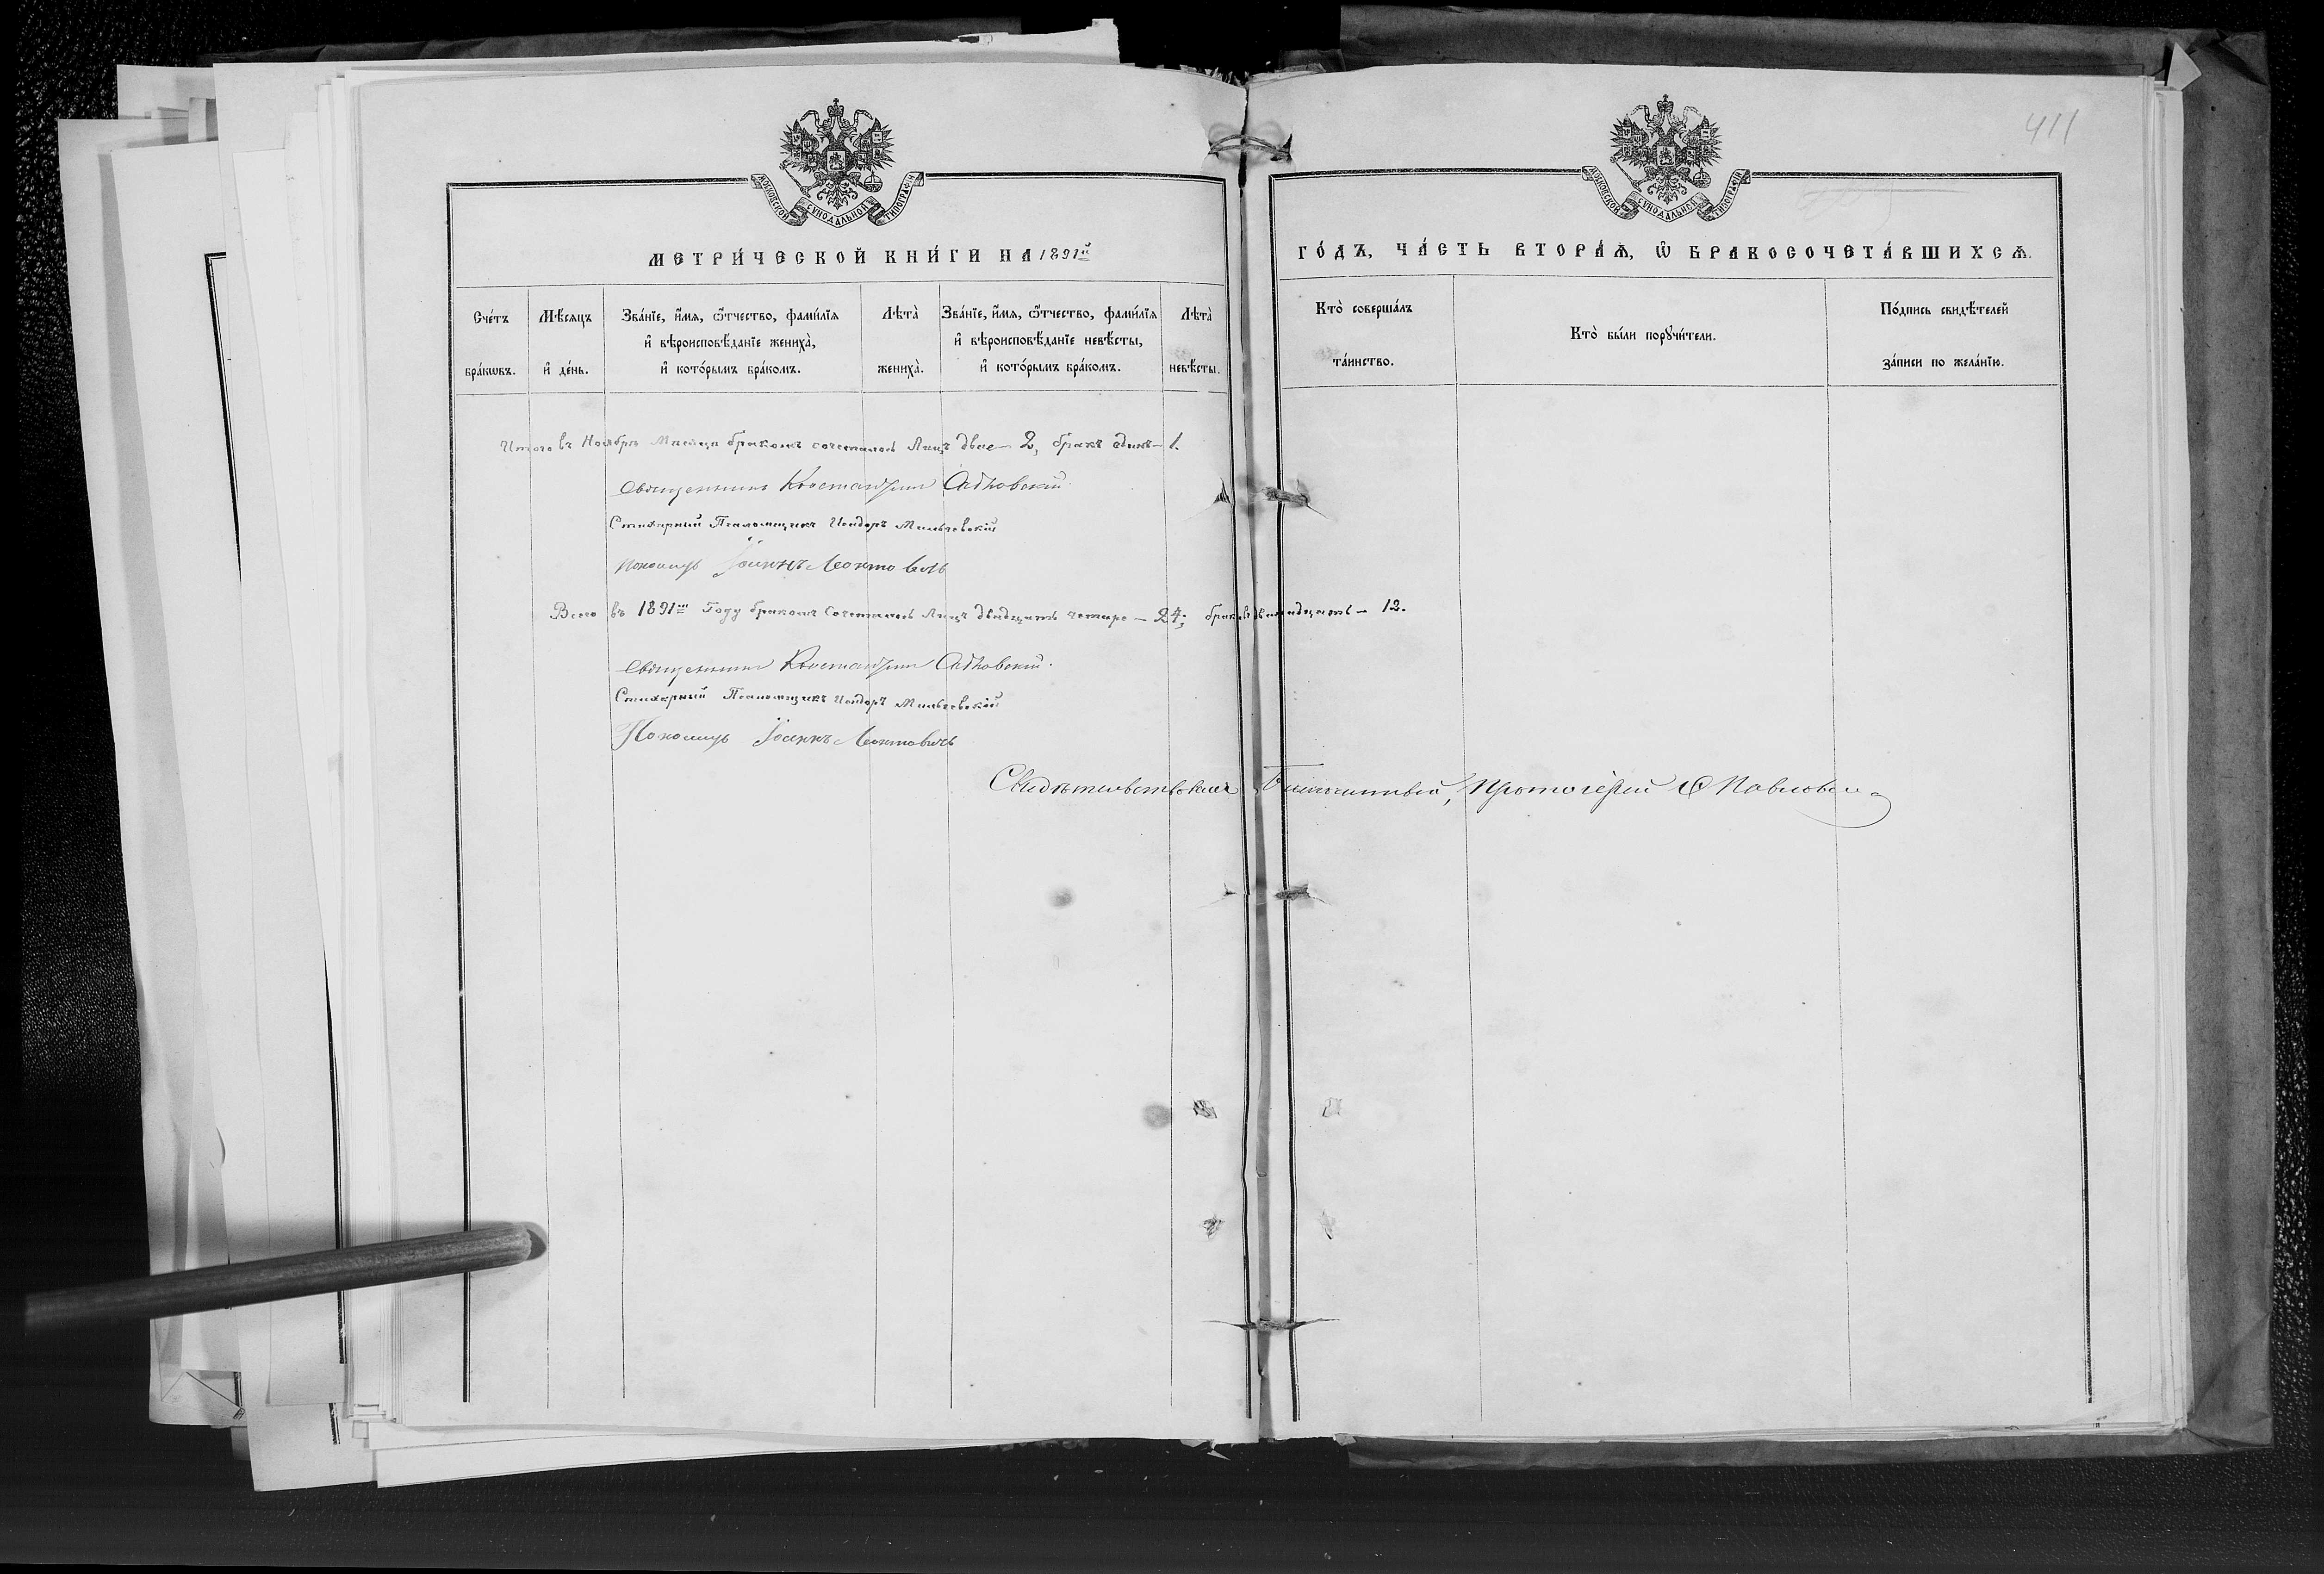 411
МОСКОВСКОЙ СУНОДАЛЬНОЙ ТИПОГРАФІИ
МОСКОВСКОЙ СУНОДАЛЬНОЙ ТИПОГРАФІИ
МЕТРИ́ЧЕСКОЙ КНИ́ГИ НА 1891й
ГО́ДЪ, ЧА́СТЬ ВТОРА́Ѧ, Ѽ БРАКОСОЧЕТА́ВШИХСѦ.
Сче́тъ бра́кѡвъ.
Мѣ́сяцъ и҆ де́нь.
Зва́нїе, и҆́мя, ѻ҆́тчество, фами́лїя
и҆ вѣроисповѣ́данїе жениха̀,
и҆ кото́рымъ бра́комъ.
Лѣта̀ жениха̀.
Зва́нїе, и҆́мя, ѻ҆́тчество, фами́лїя
и҆ вѣроисповѣ́данїе невѣ́сты,
и҆ кото́рымъ бра́комъ.
Лѣта̀ невѣ́сты.
Кто̀ соверша́лъ
та́инство.
Кто̀ бы́ли порꙋчи́тели.
По́дпись свидѣ́телей
за́писи по жела́нїю.
Итого въ Ноябрѣ Мѣсяцѣ бракомъ сочеталось Лицъ двое – 2, бракъ одинъ – 1.
Священникъ Константинъ
Стихарный Псаломщикъ Исидоръ Мильчевскій
Пономарь Іоаннъ Леонтовичъ
Всего въ 1891мъ Году бракомъ Сочеталось Лицъ двадцать четыре – 24; браковъ двѣнадцать – 12.
Священникъ Константинъ
Стихарный Псаломщикъ Исидоръ Мильчевскій
Пономарь Іоаннъ Леонтовичъ
Свидѣтельствовалъ Благочинный, Протоіерей Павловскій